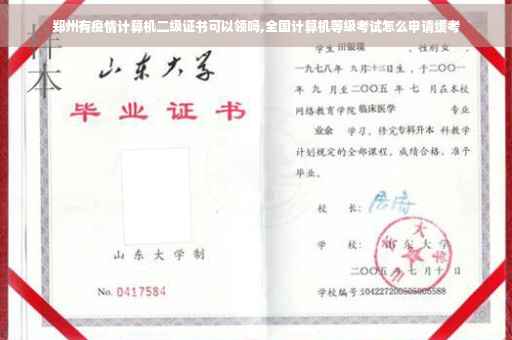 郑州有疫情计算机二级证书可以领吗,全国计算机等级考试怎么申请缓考
样本
山东大学
毕业证书
山东大学制
No. 0417584
学生 田银瑞 ,性别 女 ,
一九七八年 九月十二日生,于二〇〇一
年 九 月至二〇〇五 年 七 月在本校
网络教育学院 临床医学 专业
业余 学习,修完专科升本 科教学
计划规定的全部课程,成绩合格,准予
毕业。
校 长:
学 校: 山东大学
二〇〇五 年 七 月 十 日
学校编号:104227200505005588